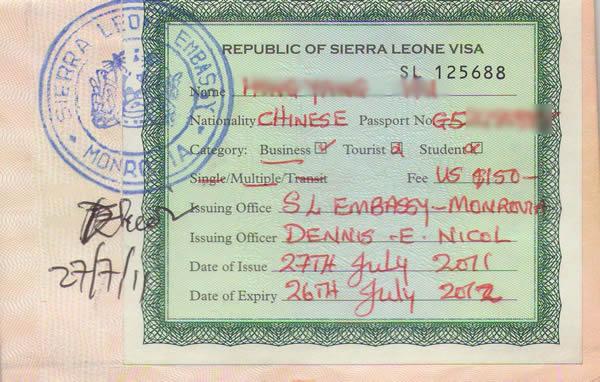 SIERRA LEONE EMBASSY
MONROVIA
REPUBLIC OF SIERRA LEONE VISA
SL 125688
Name
Nationality CHINESE Passport No G5
Category: Business Tourist Student
Single/Multiple/Transit Fee US $150-
Issuing Office SL EMBASSY-MONROVIA
Issuing Officer DENNIS .E. NICOL
Date of Issue 27TH July 2011
Date of Expiry 26TH July 2012
27/7/11